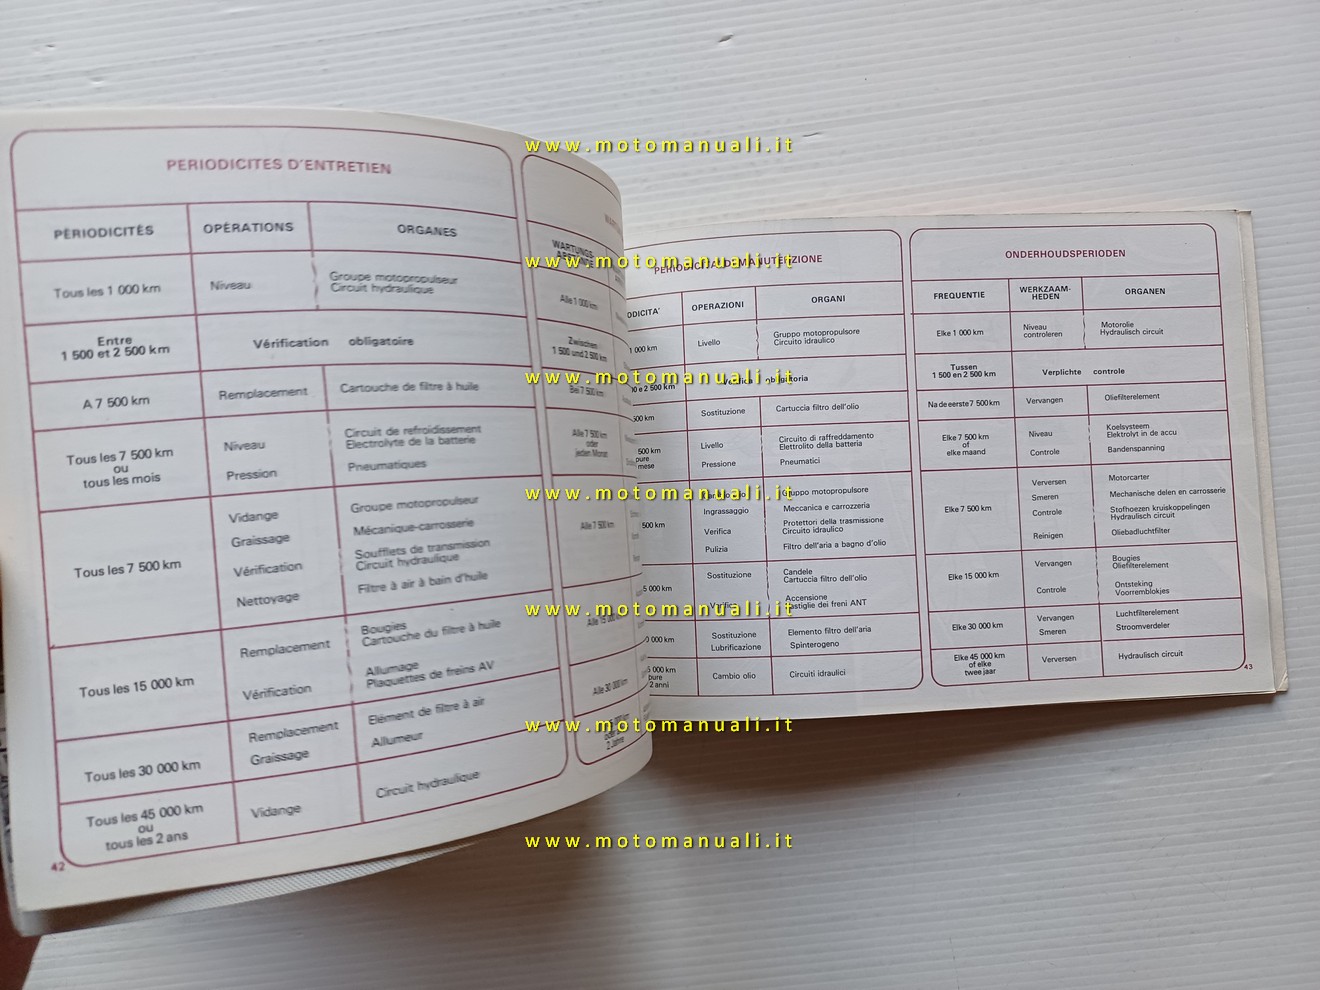 PERIODICITES D'ENTRETIEN
PÉRIODICITÉS OPÉRATIONS ORGANES
Tous les 1 000 km Niveau Groupe motopropulseur
Circuit hydraulique
Entre
1 500 et 2 500 km Vérification obligatoire
A 7 500 km Remplacement Cartouche de filtre à huile
Tous les 7 500 km
ou
tous les mois
Niveau Circuit de refroidissement
Electrolyte de la batterie
Pression Pneumatiques
Tous les 7 500 km
Vidange Groupe motopropulseur
Graissage Mécanique-carrosserie
Vérification Soufflets de transmission
Circuit hydraulique
Nettoyage Filtre à air à bain d'huile
Tous les 15 000 km
Remplacement Bougies
Cartouche du filtre à huile
Vérification Allumage
Plaquettes de freins AV
Tous les 30 000 km
Remplacement Elément de filtre à air
Graissage Allumeur
Tous les 45 000 km
ou
tous les 2 ans
Vidange Circuit hydraulique
42
WARTUNGS
Alle 1 000 km
Zwischen
1 500 und 2 500 km
Bei 7 500 km
Alle 7 500 km
oder
jeden Monat
Alle 7 500 km
Alle 15 000 km
Alle 30 000 km
2 Jahre
PERIODICITA DI MANUTENZIONE
ODICITA' OPERAZIONI ORGANI
000 km Livello Gruppo motopropulsore
Circuito idraulico
e 2 500 km obligatoria
500 km Sostituzione Cartuccia filtro dell'olio
500 km
pure
mese
Livello Circuito di raffreddamento
Elettrolito della batteria
Pressione Pneumatici
500 km
Gruppo motopropulsore
Ingrassaggio Meccanica e carrozzeria
Verifica Protettori della trasmissione
Circuito idraulico
Pulizia Filtro dell'aria a bagno d'olio
5 000 km
Sostituzione Candele
Cartuccia filtro dell'olio
Verifica Accensione
Pastiglie dei freni ANT
000 km
Sostituzione Elemento filtro dell'aria
Lubrificazione Spinterogeno
5 000 km
pure
2 anni
Cambio olio Circuiti idraulici
ONDERHOUDSPERIODEN
FREQUENTIE WERKZAAM-
HEDEN ORGANEN
Elke 1 000 km Niveau
controleren Motorolie
Hydraulisch circuit
Tussen
1 500 en 2 500 km Verplichte controle
Na de eerste 7 500 km Vervangen Oliefilterelement
Elke 7 500 km
of
elke maand
Niveau Koelsysteem
Elektrolyt in de accu
Controle Bandenspanning
Elke 7 500 km
Verversen Motorcarter
Smeren Mechanische delen en carrosserie
Controle Stofhoezen kruiskoppelingen
Hydraulisch circuit
Reinigen Oliebadluchtfilter
Elke 15 000 km
Vervangen Bougies
Oliefilterelement
Controle Ontsteking
Voorremblokjes
Elke 30 000 km
Vervangen Luchtfilterelement
Smeren Stroomverdeler
Elke 45 000 km
of elke
twee jaar
Verversen Hydraulisch circuit
43
www.motomanuali.it
www.motomanuali.it
www.motomanuali.it
www.motomanuali.it
www.motomanuali.it
www.motomanuali.it
www.motomanuali.it